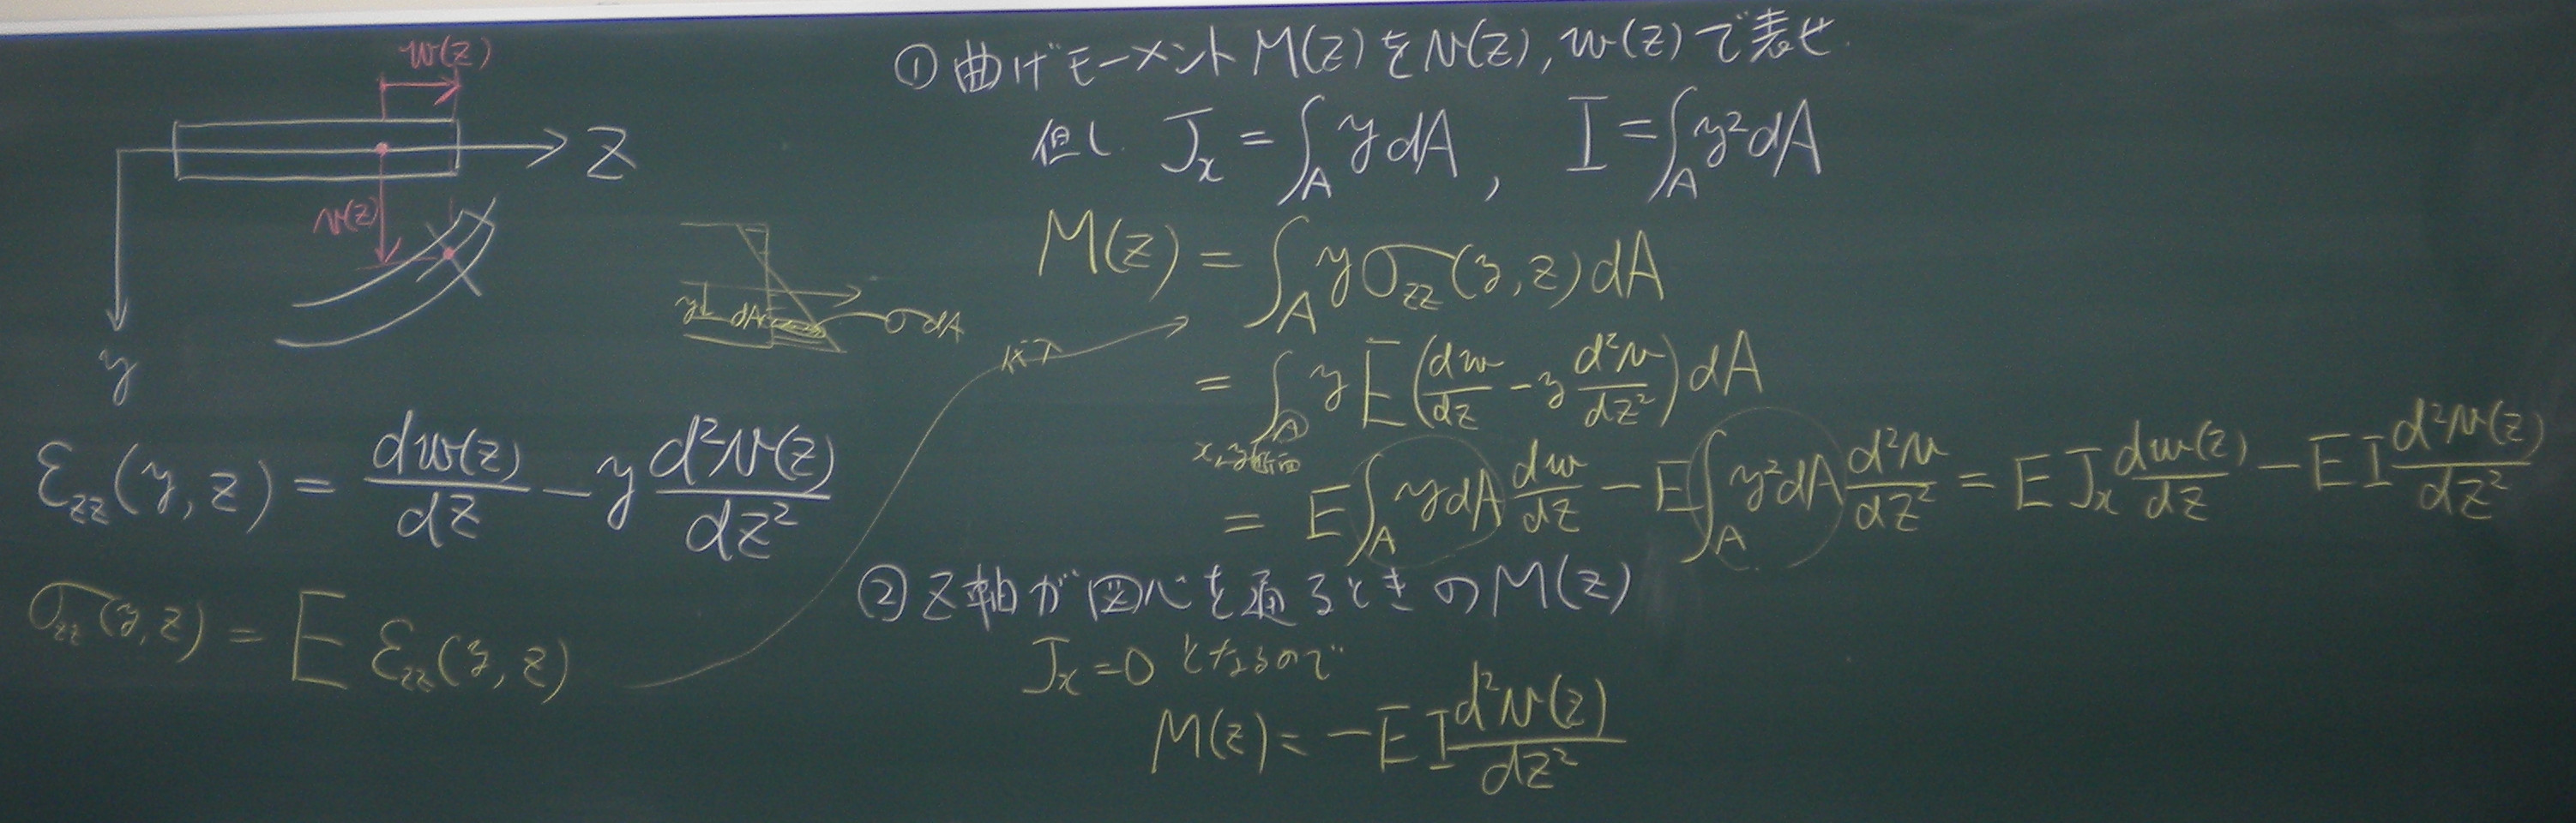 w(z)
z
v(z)
y
ε_zz(y,z) = dw(z)/dz − y d²v(z)/dz²
σ_zz(y,z) = E ε_zz(y,z)
y dA σdA
代入
①曲げモーメントM(z)をv(z),w(z)で表せ.
但し J_x = ∫_A y dA , I = ∫_A y² dA
M(z) = ∫_A y σ_zz(y,z) dA
= ∫_A y E (dw/dz − y d²v/dz²) dA
x,y断面
= E ∫_A y dA dw/dz − E ∫_A y² dA d²v/dz² = E J_x dw(z)/dz − E I d²v(z)/dz²
②z軸が図心を通るときのM(z)
J_x = 0 となるので
M(z) = −E I d²v(z)/dz²